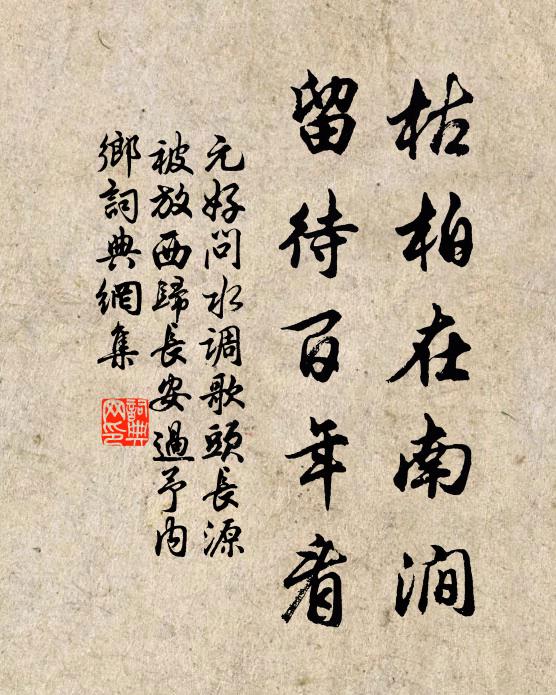 枯柏在南澗
留待百年看
元好问水调歌頭長源
被放西歸長安過予内
鄉詞典網集
詞典
网印